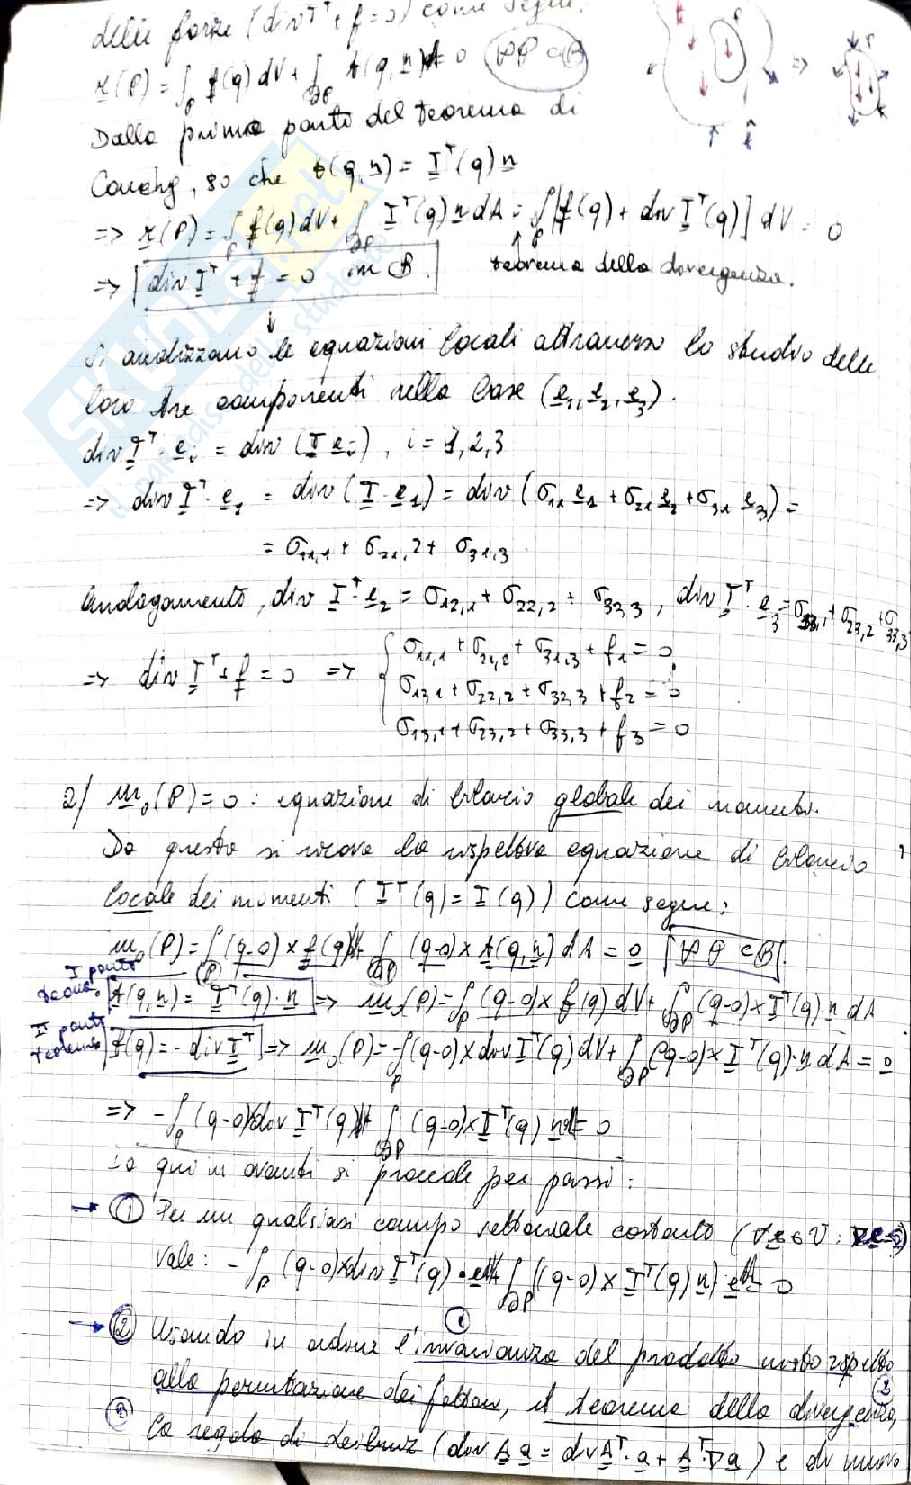 delle forze (div T^T + f = 0) come segue:
r(P) = ∫_P f(q) dV + ∫_∂P t(q, n) dA = 0 ∀P ⊂ B
Dalla prima parte del teorema di
Cauchy, so che t(q, n) = T^T(q) n
=> r(P) = ∫_P f(q) dV + ∫_∂P T^T(q) n dA = ∫_P [f(q) + div T^T(q)] dV = 0
=> div T^T + f = 0 in B.
teorema della divergenza.
Si analizzano le equazioni locali attraverso lo studio delle
loro tre componenti nella base (e1, e2, e3).
div T^T · ei = div (T ei), i = 1,2,3
=> div T^T · e1 = div (T · e1) = div (σ11 e1 + σ21 e2 + σ31 e3) =
= σ11,1 + σ21,2 + σ31,3
Analogamente, div T^T · e2 = σ12,1 + σ22,2 + σ32,3, div T^T · e3 = σ13,1 + σ23,2 + σ33,3
=> div T^T + f = 0 => { σ11,1 + σ21,2 + σ31,3 + f1 = 0
σ12,1 + σ22,2 + σ32,3 + f2 = 0
σ13,1 + σ23,2 + σ33,3 + f3 = 0
2/ m_o(P) = 0 : equazione di bilancio globale dei momenti.
Da questa si ricava la rispettiva equazione di bilancio
locale dei momenti (T^T(q) = T(q)) come segue:
m_o(P) = ∫_P (q-o) × f(q) dV + ∫_∂P (q-o) × t(q, n) dA = 0 ∀P ⊂ B.
I parte
teorema
t(q, n) = T^T(q) · n => m_o(P) = ∫_P (q-o) × f(q) dV + ∫_∂P (q-o) × T^T(q) n dA
II parte
teorema
f(q) = - div T^T => m_o(P) = -∫_P (q-o) × div T^T(q) dV + ∫_∂P (q-o) × T^T(q) · n dA = 0
=> -∫_P (q-o) × div T^T(q) dV + ∫_∂P (q-o) × T^T(q) n dA = 0
Da qui in avanti si procede per passi:
→ ① Per un qualsiasi campo vettoriale costante (∀e ∈ V : ∇e = 0)
vale: -∫_P (q-o) × div T^T(q) · e dV + ∫_∂P ((q-o) × T^T(q) n) · e dA = 0
①
→ ② Usando in ordine l'invarianza del prodotto misto rispetto
②
alla permutazione dei fattori, il teorema della divergenza,
③ la regola di Leibniz (div A a = div A^T · a + A^T · ∇a) e di nuovo